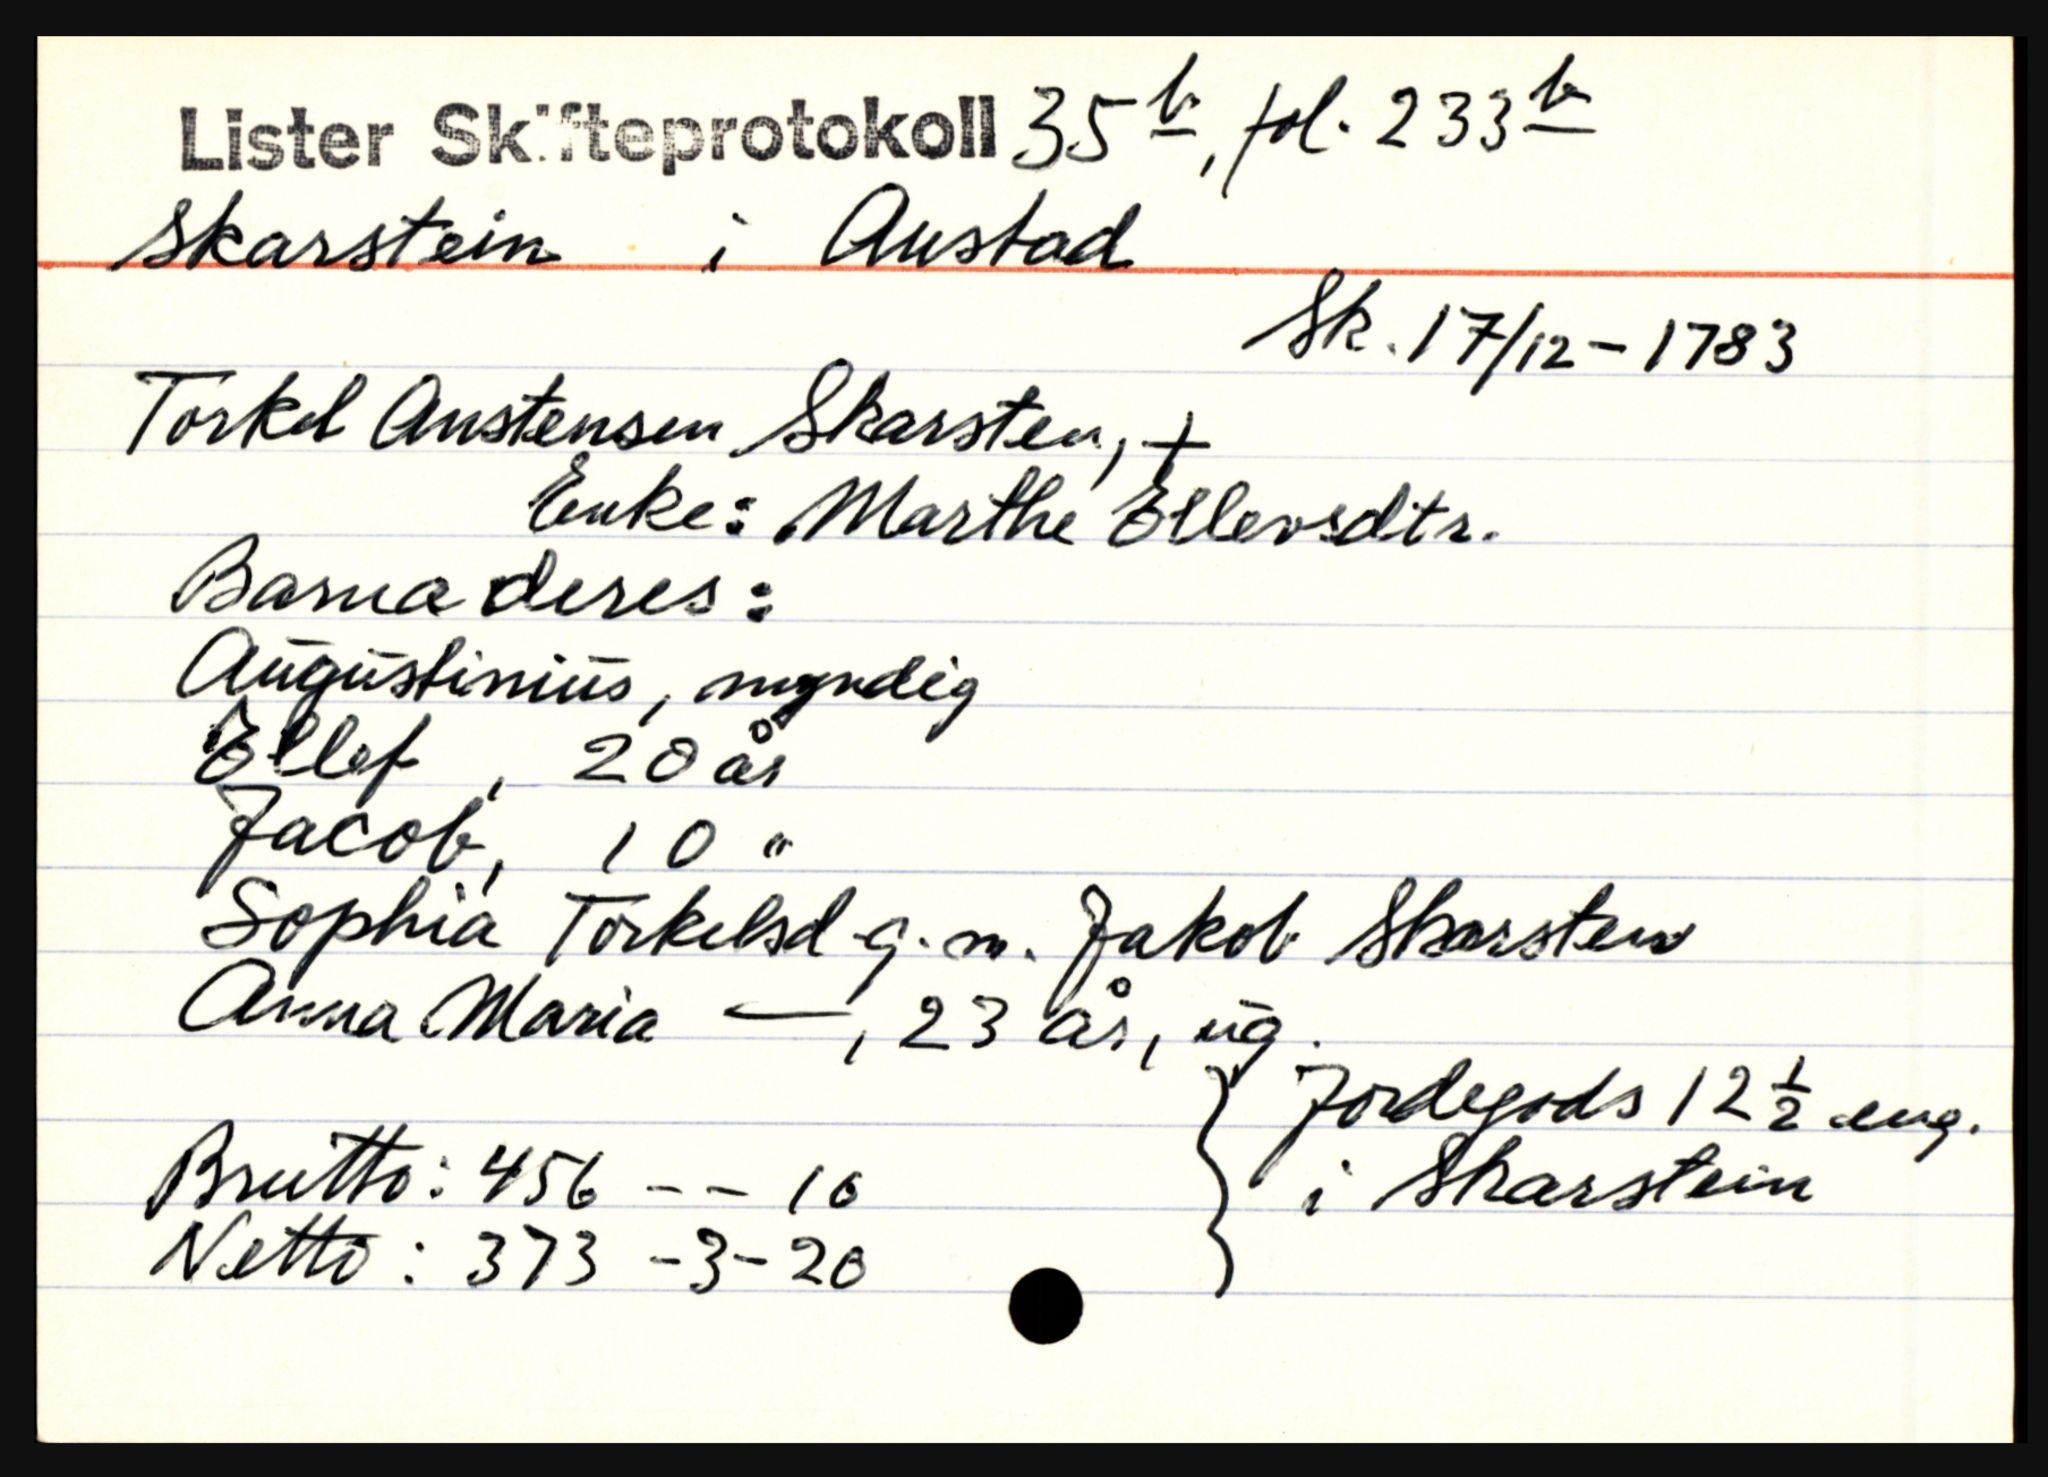 Lister Skifteprotokoll 35b, fol. 233b
Skarstein i Austad
Sk. 17/12 - 1783
Torkel Austensen Skarsten, +
Enke: Marthe Ellevsdtr.
Barna deres:
Augustinius, myndig
Ellef, 20 år
Jacob, 10 "
Sophia Torkelsd g. m. Jakob Skarsten
Anna Maria —, 23 år, ug.
Jordegods 12 1/2 eng.
i Skarstein
Brutto: 456 - - 10
Netto: 373 - 3 - 20